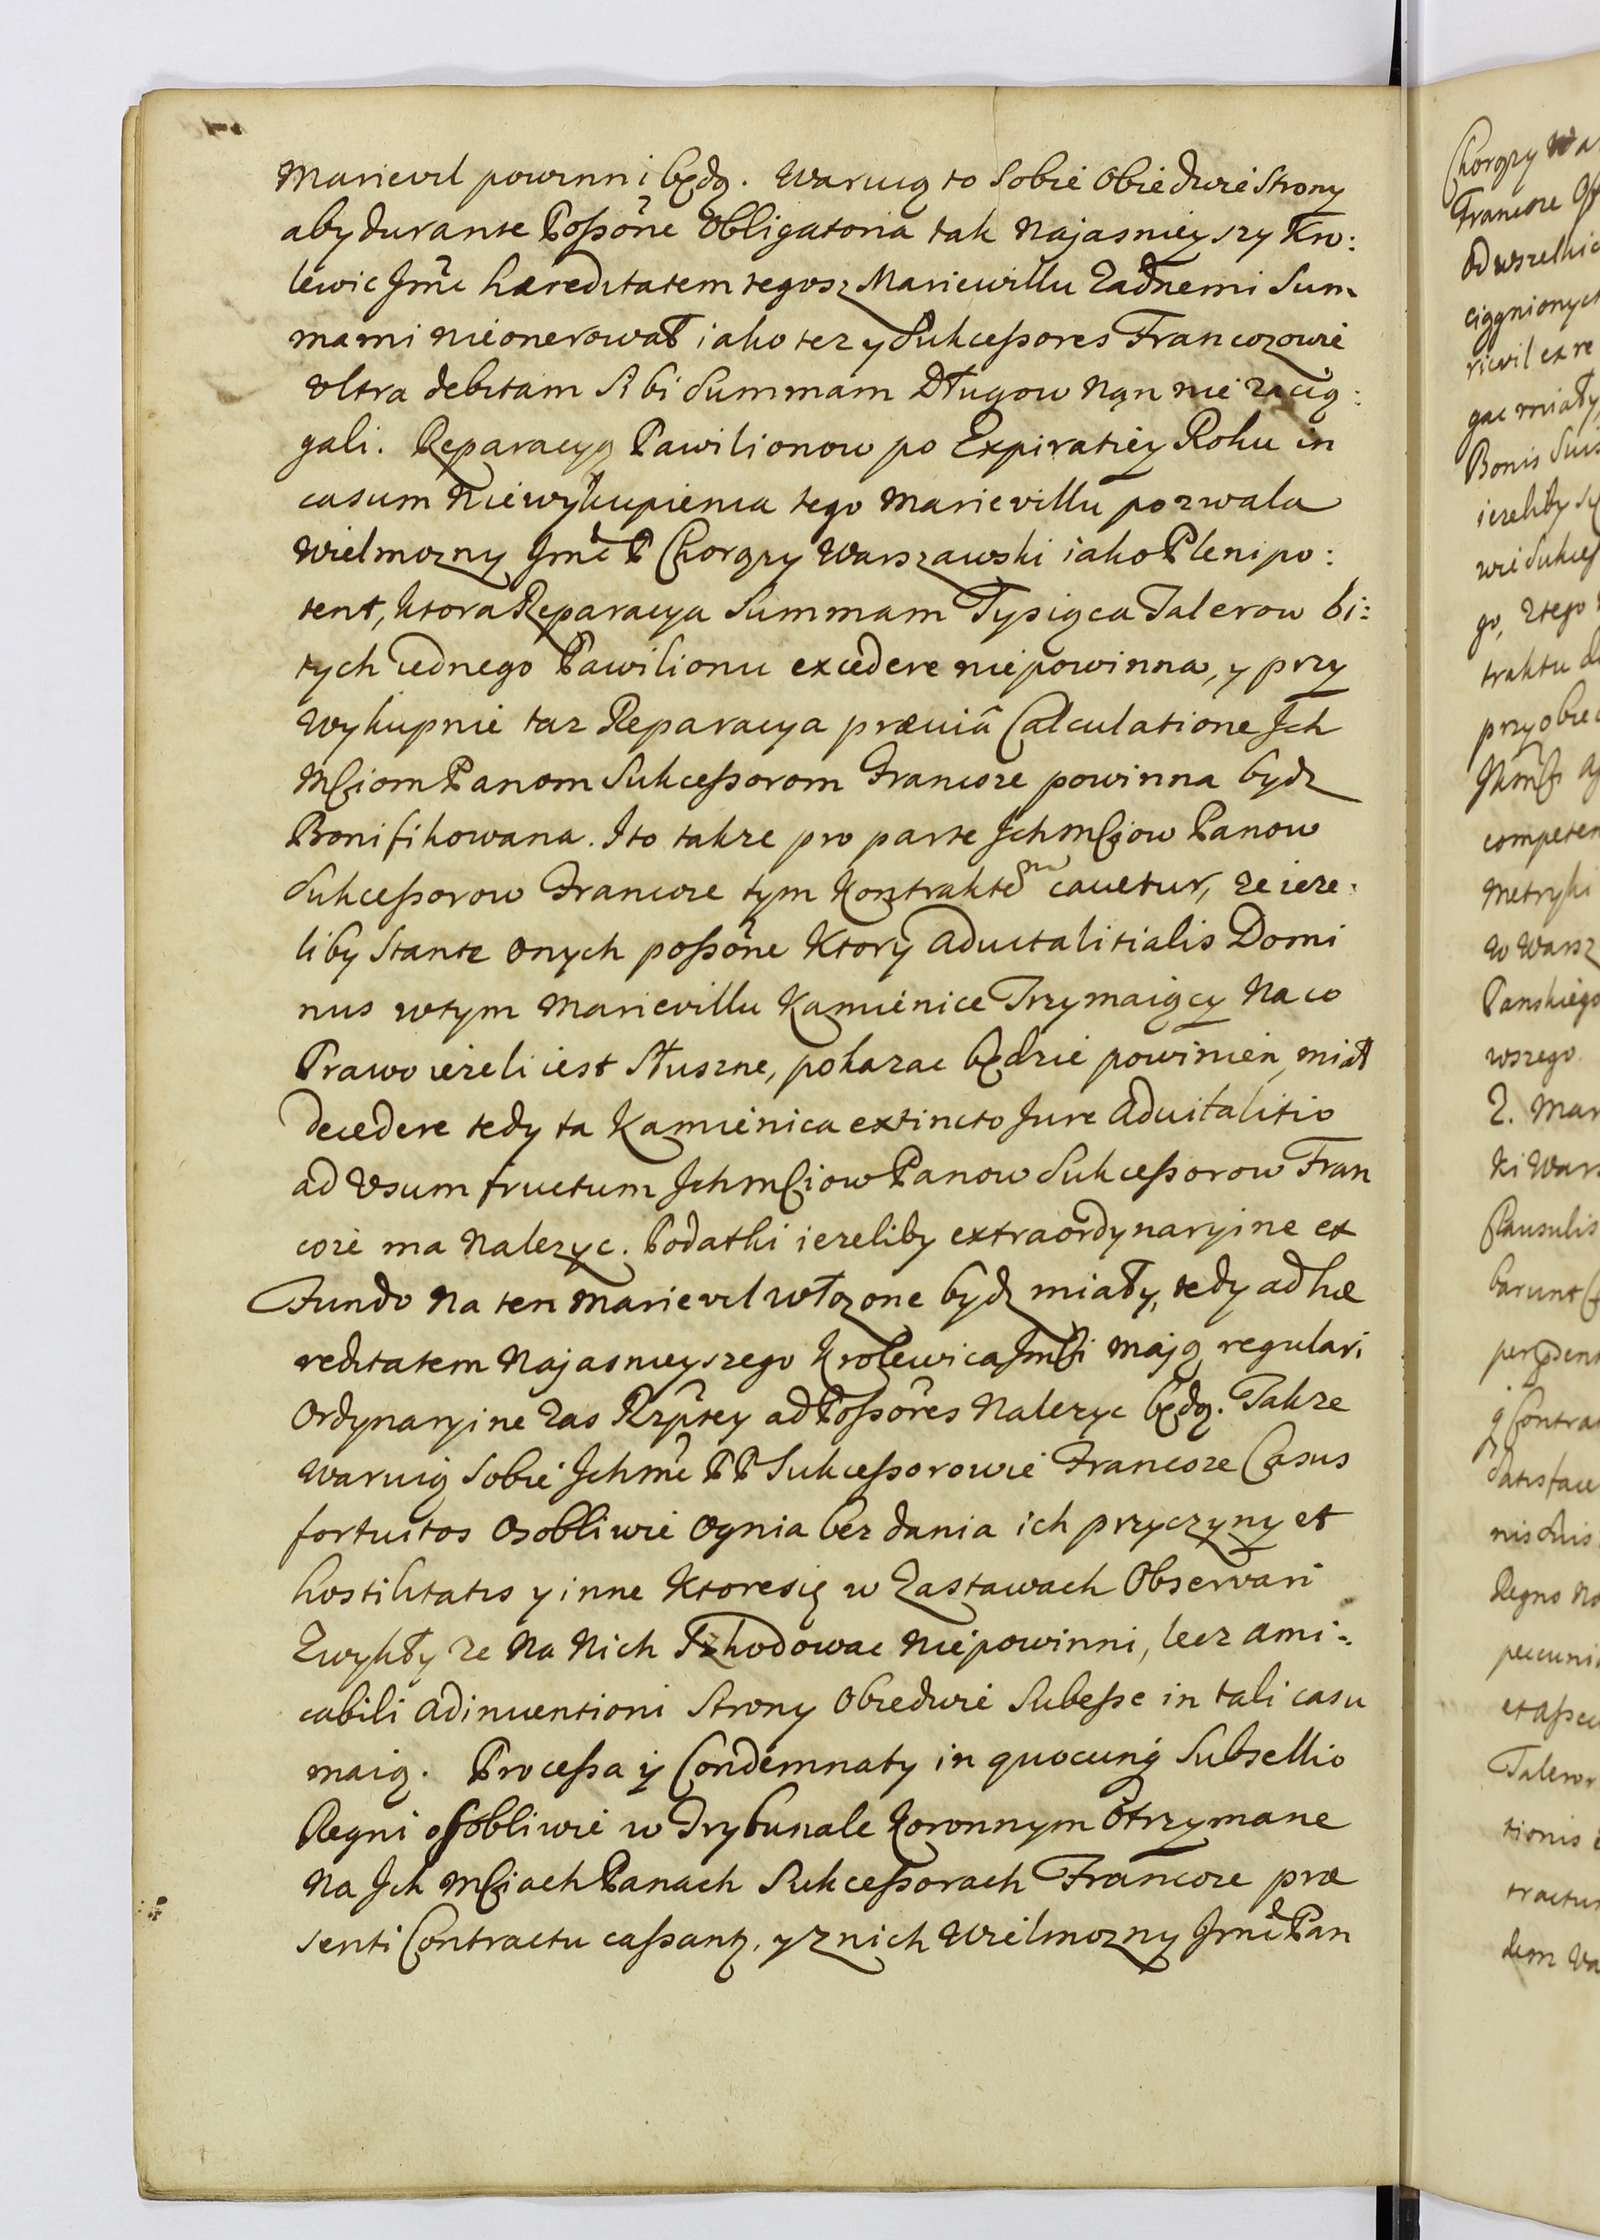 Marievil powinni będą. Waruią to Sobie Obie dwie Strony
aby durante Possõne Obligatoria tak Najasnieyszy Kro:
lewic Jmc hæreditatem tegosz Mariewillu Zadnemi Sum
mami nieonerował iako tez y Sukcessores Francozowie
Ultra debitam Sibi Summam Długow Nań nie zacią:
gali. Reparacyą Pawilionow po Expiratiey Roku in
casum Niewykupienia tego Marievillu pozwala
Wielmozny Jmc P Chorązy Warszawski iako Plenipo:
tent, ktora Reparacya Summam Tysiąca Talerow bi:
tych iednego Pawilionu excedere niepowinna, y przy
Wykupnie taz Reparacya præviâ Calculatione Ich
Mciom Panom Sukcessorom Francoze powinna bydz
Bonifikowana. Ito takze pro parte Ichmciow Panow
Sukcessorow Francoze tym Kontraktem cavetur, ze ieze:
liby Stante onych possõne Ktory advitalitialis Domi
nus wtym Marievillu Kamienice Trzymaiący Na co
Prawo iezeli iest Słuszne, pokazac będzie powinien, miał
decedere tedy ta Kamienica extincto Jure advitalitio
ad Usum fructum Ichmciow Panow Sukcessorow Fran
coze ma Nalezyc. Podatki iezeliby extraordynaryine ex
Fundo Na ten Marievil włozone bydz miały, tedy ad hæ
reditatem Najasnieyszego Krolewica Jmci mają regulari
Ordynaryine zas Rzptey ad Possõres Nalezyc będą. Takze
waruią Sobie Ichmc PP Sukcessorowie Francoze Casus
fortuitos Osobliwie Ognia bez dania ich przyczyny et
hostilitatis y inne Ktoresię w Zastawach Observari
Zwykły ze Na Nich Szkodowac Niepowinni, lecz ami:
cabili adinventioni Strony Obiedwie Subesse in tali casu
maią. Processa y Condemnaty in quocunq Subsellio
Regni osobliwie w Trybunale Koronnym Otrzymane
Na Ich Mciach Panach Sukcessorach Francoze præ
senti Contractu cassant, y z nich Wielmozny Jmc Pan
Chorązy Wa
Francoze
Od wszelkic
ciągnionych
rievil ex re
gac miały,
Bonis Suis
iezeliby
wie Sukces
go, Ztego
traktu
przyobiec
competen
Metryki
w Warsz
Panskiego
wszego
Z. Mar
ki Wars
Clausulis
barunt
Contra
Satisfac
nis Suis
Regno No
pecuni
et assec
Talerow
tionis
tractu
dem Va